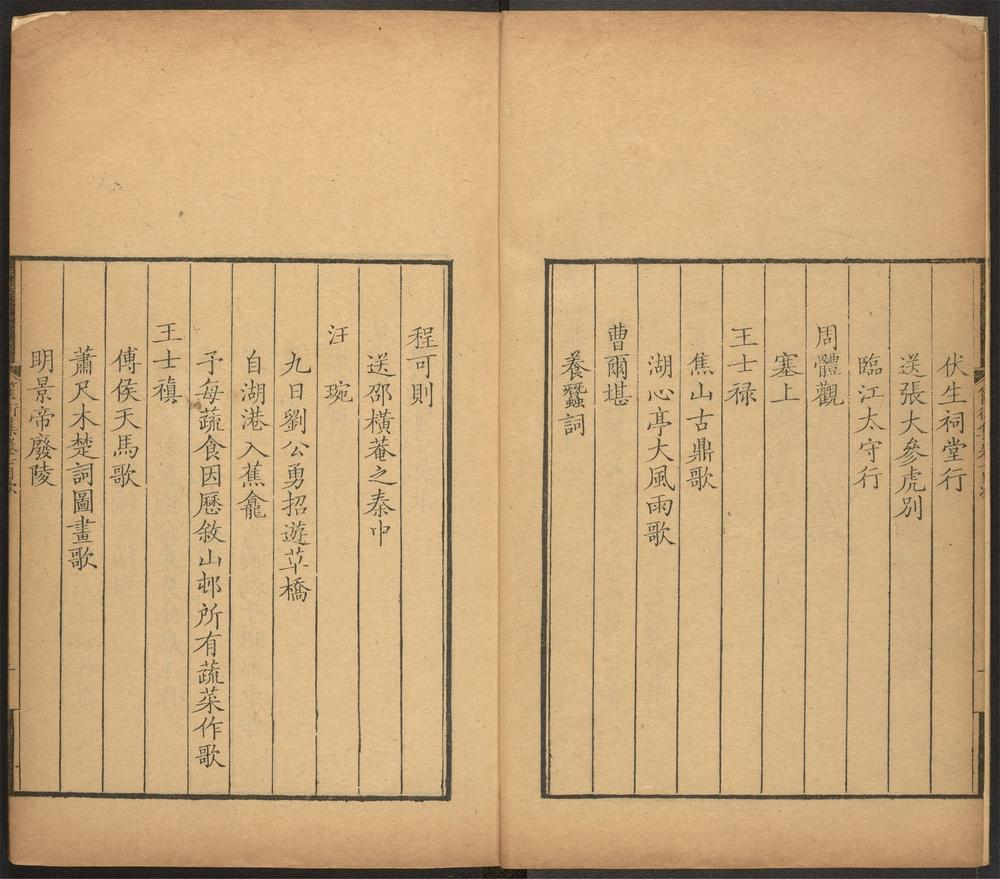 伏生祠堂行
送張大參虎別
臨江太守行
周體觀
塞上
王士禄
焦山古鼎歌
湖心亭大風雨歌
曹爾堪
養蠶詞
程可則
送邵横菴之秦中
汪琬
九日劉公勇招遊草橋
自湖港入蕉龕
予每蔬食因歷敘山邨所有蔬菜作歌
王士禛
傅侯天馬歌
蕭尺木楚詞圖畫歌
明景帝廢陵